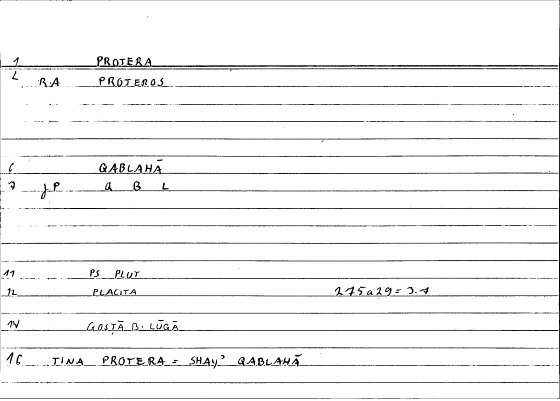 1 PROTERA
2 R.A PROTEROS
6 QABLAHĀ
7 J.P Q B L
11 PS PLUT
12 PLACITA 275a29 = 3.7
14 QOSṬĀ B. LŪQĀ
16 TINA PROTERA = SHAYʾ QABLAHĀ